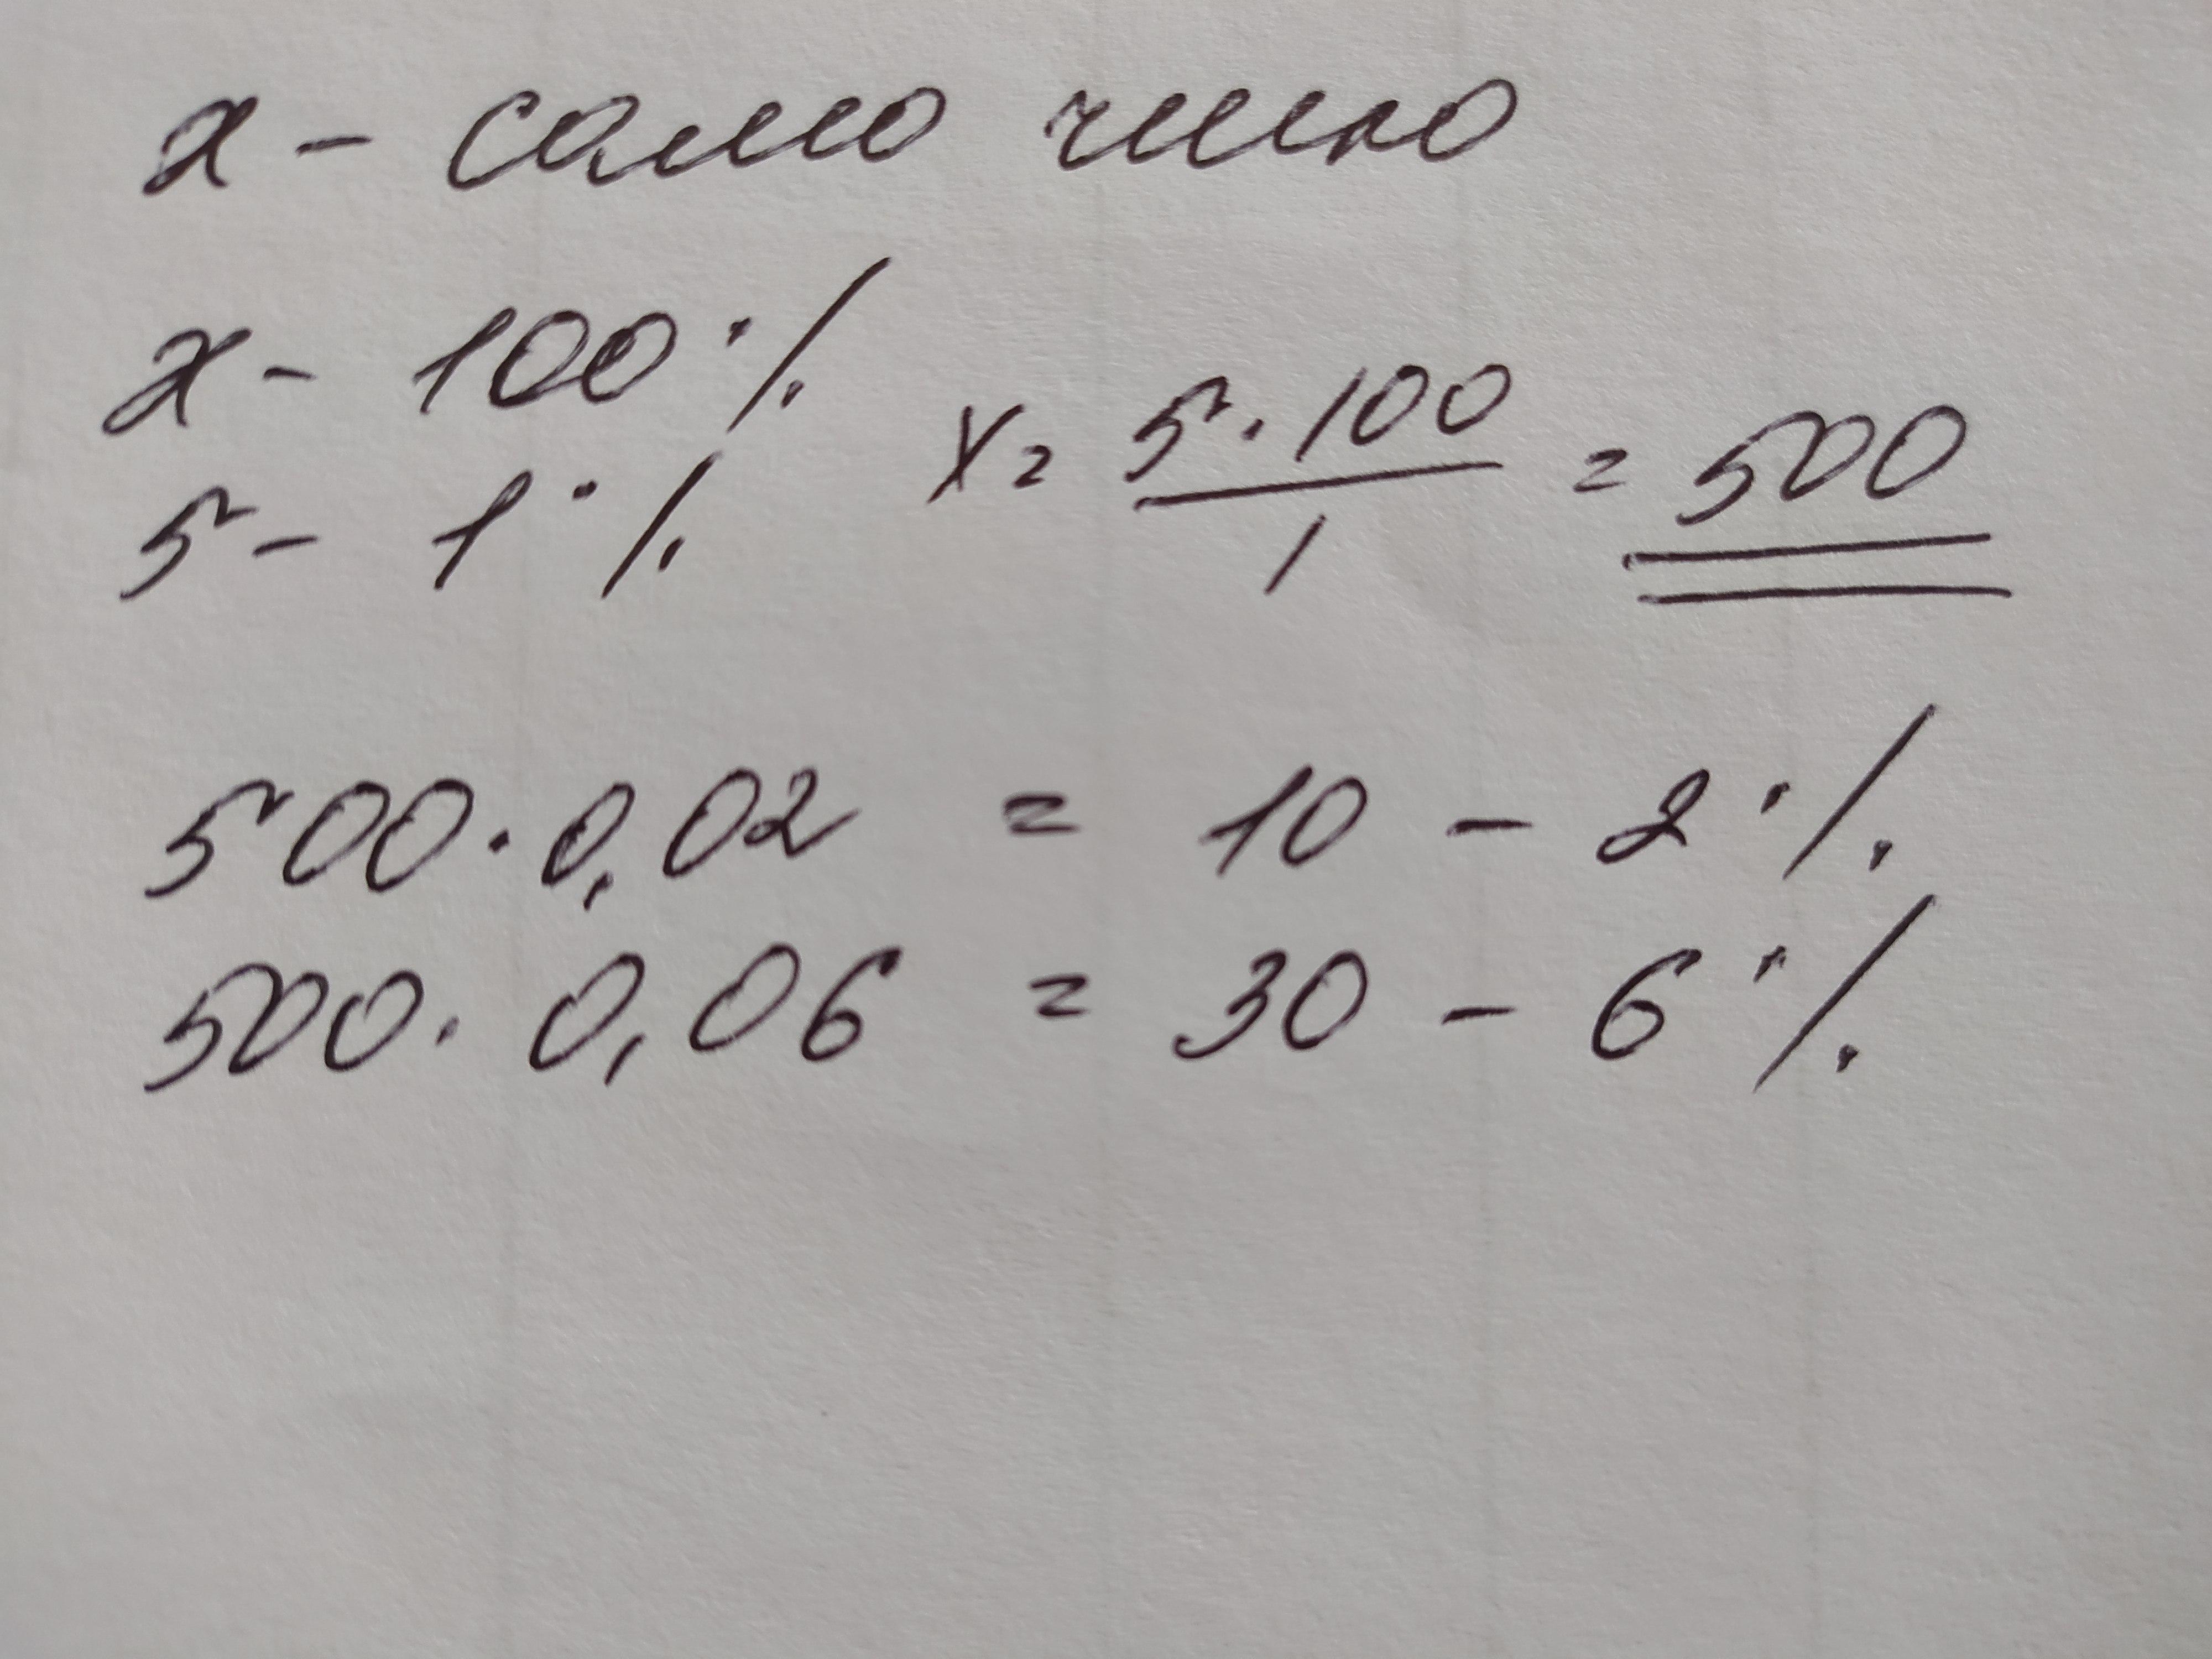 х - само число
х - 100%
5 - 1%
x = 5 · 100 / 1 = 500
500 · 0,02 = 10 - 2%
500 · 0,06 = 30 - 6%